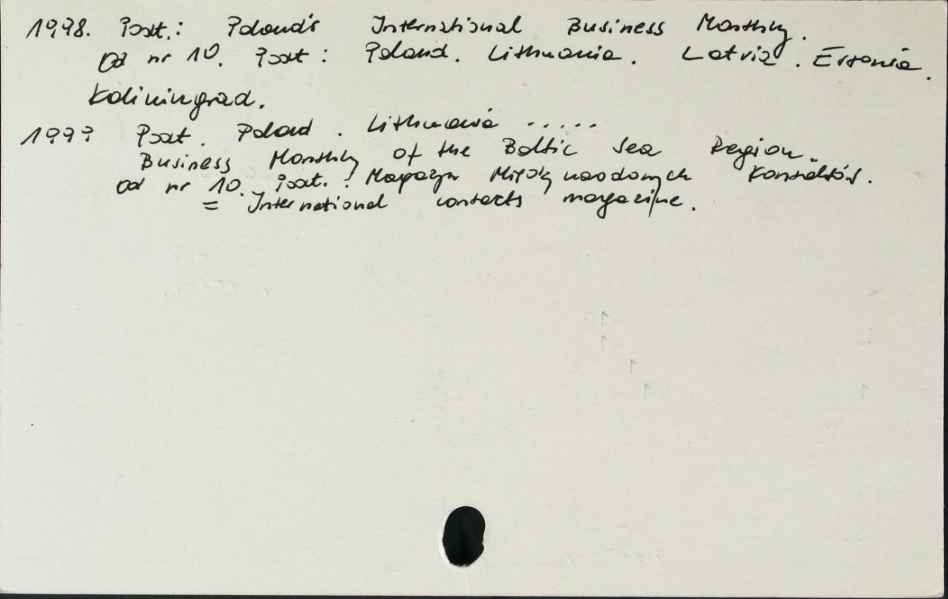 1998. Podt.: Poland's International Business Monthly.
Od nr 10. Podt: Poland. Lithuania. Latvia. Estonia.
Kaliningrad.
1999 Podt. Poland. Lithuania .....
Business Monthly of the Baltic Sea Region.
Od nr 10. Podt.: Magazyn Międzynarodowych Kontaktów.
= International contacts magazine.